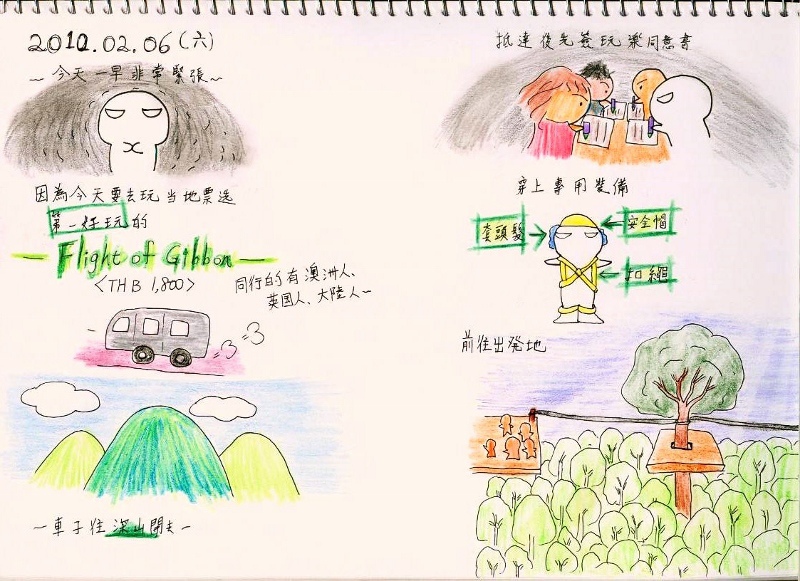 2010.02.06(六)
～今天一早非常緊張～
因為今天要去玩當地票选
第一好玩的
— Flight of Gibbon —
<THB 1,800>
同行的有澳洲人、
英国人、大陸人~
=3 =3
-車子往深山開去-
抵達後先簽玩樂同意書
穿上專用裝備
套頭髮
安全帽
扣繩
前往出発地